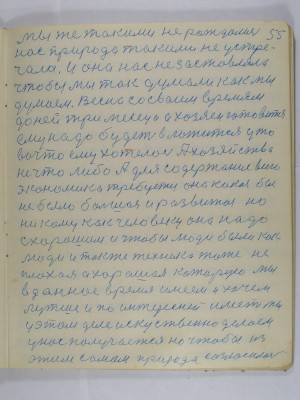 55
мы же такими не рождались
нас природа такими не устре-
чала. И она нас не заставляла
чтобы мы так думали как мы
думаем. Весна со своим временем
до ней три месяца хозяен готовится
ему надо будет вложится у то
во что ему хотелось А хозяйства
не что либо А для содержания его
экономика требуется она какая бы
не было большая и развитая но
никому как человеку она надо
с хорошим и чтобы люди были как
люди и также техника тоже не
плохая а хорошая которую мы
в данное время имеем а хочем
лутше и по интересней иметь мы
у этом деле искуственно делаем
у нас получается но чтобы из
этим самим природа согласилась